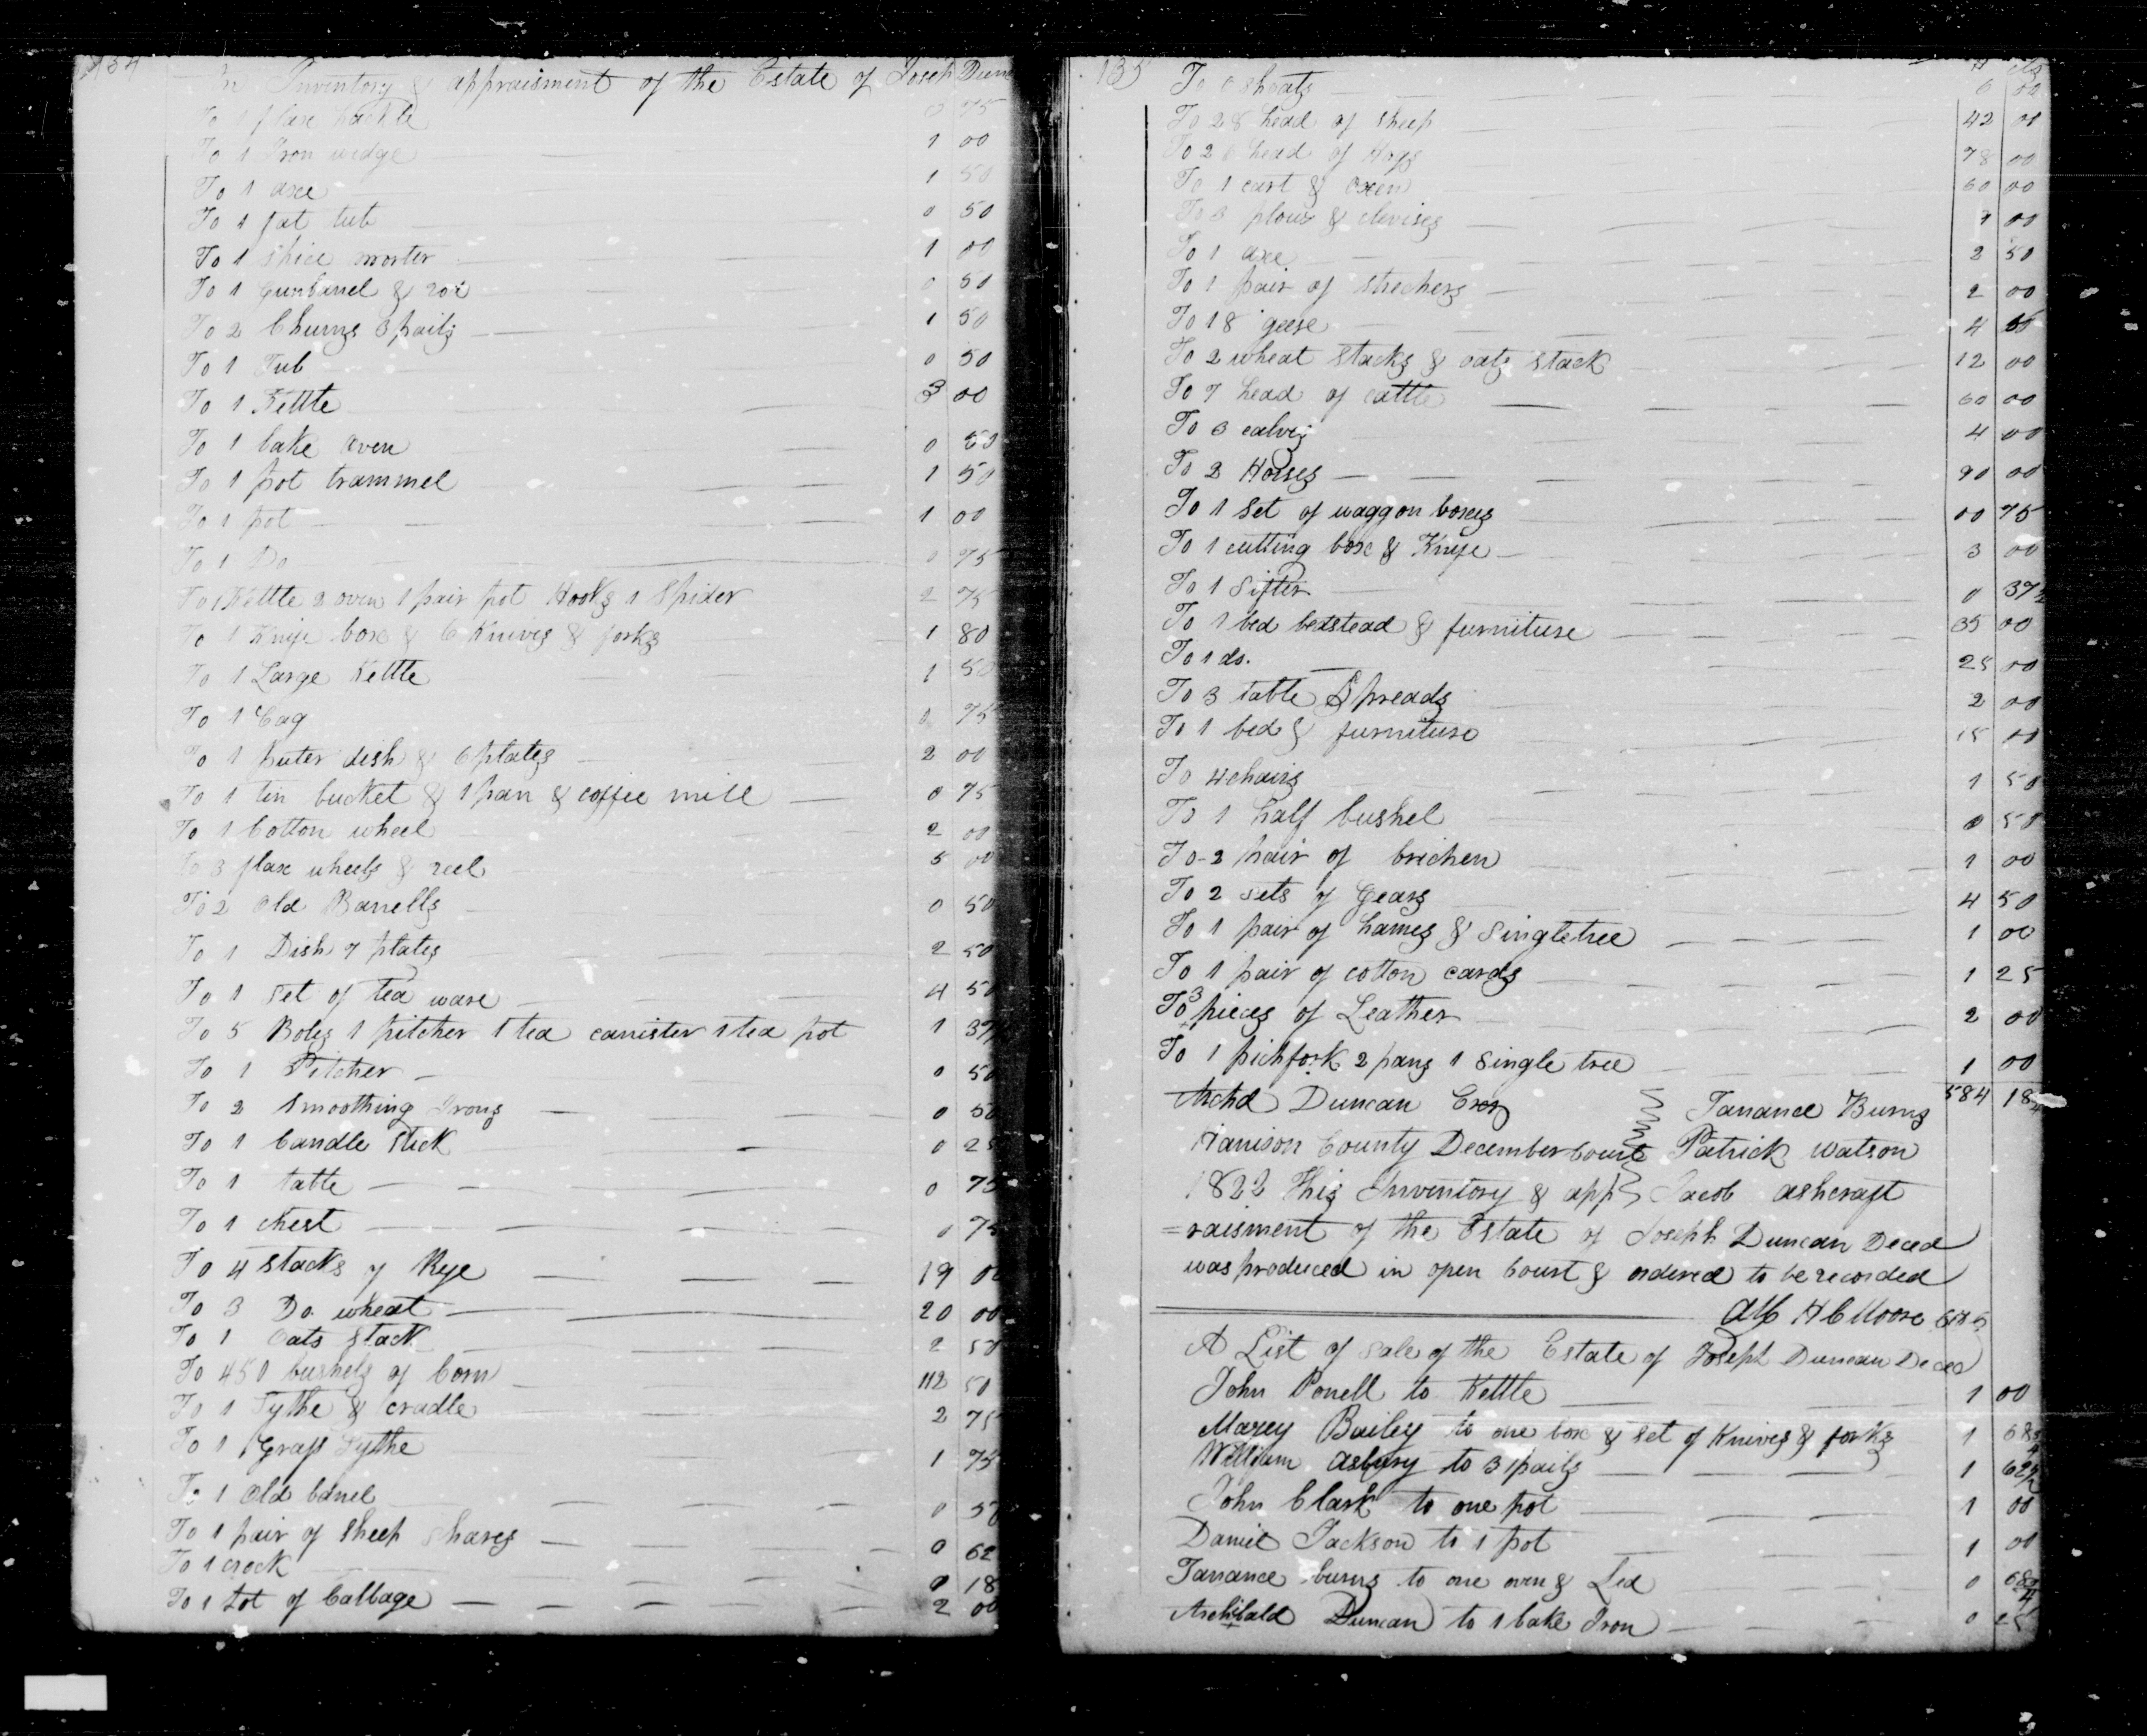 134
An Inventory & appraisment of the Estate of Joseph Dun
To 1 flax hackle 0 75
To 1 Iron wedge 1 00
To 1 axe 1 50
To 1 fat tub 0 50
To 1 spice morter 1 00
To 1 Gunbarrel & 0 50
To 2 Churns 3 pails 1 50
To 1 Tub 0 50
To 1 Kettle 3 00
To 1 bake oven 0 50
To 1 pot trammel 1 50
To 1 pot 1 00
To 1 Do 0 75
To 1 Kettle 2 oven 1 pair pot Hooks 1 Spider 2 75
To 1 Knife box & 6 Knives & forks 1 80
To 1 Large Kettle 1 50
To 1 Cag 0 75
To 1 puter dish & 6 plates 2 00
To 1 tin bucket & 1 pan & coffee mill 0 75
To 1 Cotton wheel 2 00
To 3 flax wheels & reel 5 00
To 2 Old Barrells 0 50
To 1 Dish 7 plates 2 50
To 1 Set of tea ware 4 50
To 5 Boles 1 pitcher 1 tea canister 1 tea pot 1 37
To 1 Pitcher 0 50
To 2 Smoothing Irons 0 50
To 1 Candle Stick 0 25
To 1 table 0 75
To 1 chest 0 75
To 4 Stacks of Rye 19 00
To 3 Do wheat 20 00
To 1 Oats Stack 2 50
To 450 bushels of Corn 112 50
To 1 Sythe & cradle 2 75
To 1 Grass Sythe 1 75
To 1 Old barrel 0 50
To 1 pair of Sheep Shares 0 62
To 1 crock 0 18
To 1 Lot of Cabbage 2 00
135
$ cts
To 6 shoats 6 00
To 28 head of sheep 42 00
To 26 head of Hogs 78 00
To 1 cart & Oxen 60 00
To 3 plows & clevises 7 00
To 1 axe 2 50
To 1 pair of strechers 2 00
To 18 geese 4 50
To 2 wheat stacks & oats stack 12 00
To 7 head of cattle 60 00
To 3 calves 4 00
To 2 Horses 90 00
To 1 Set of waggon boxes 00 75
To 1 cutting box & Knife 3 00
To 1 Sifter 0 37½
To 1 bed bedstead & furniture 35 00
To 1 do. 25 00
To 3 table Spreads 2 00
To 1 bed & furniture 15 00
To 4 chairs 1 50
To 1 half bushel 0 50
To 2 pair of brichen 1 00
To 2 sets of Gears 4 50
To 1 pair of hames & Singletree 1 00
To 1 pair of cotton cards 1 25
To 3 pieces of Leather 2 00
To 1 pichfork 2 pans 1 Single tree 1 00
Archd Duncan Exor Tarrance Burns 584 18
Harrison County December Court Patrick Watson
1822 This Inventory & app Jacob ashcraft
=raisment of the Estate of Joseph Duncan Deced
was produced in open Court & ordered to be recorded
H C Moore
A List of Sale of the Estate of Joseph Duncan Deced
John Ponell to Kettle 1 00
Marey Bailey to one box & Set of Knives & forks 1 68
William Asbury to 3 pails 1 62½
John Clark to one pot 1 00
Daniel Jackson to 1 pot 1 00
Tarrance burns to one oven & Led 0 68
Archibald Duncan to 1 bake Iron 0 25